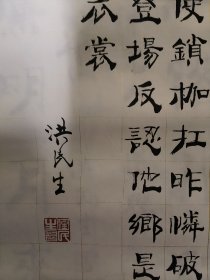 使鎖枷扛昨憐破
登場反認他鄉是
衣裳
洪民生